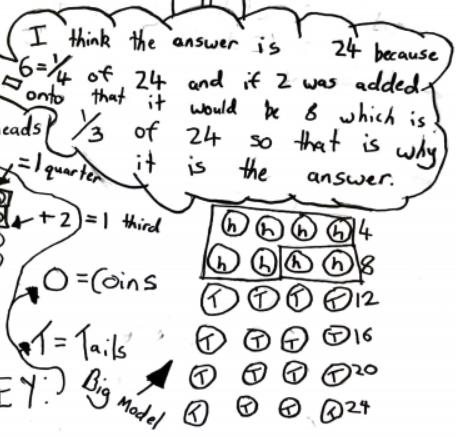 I think the answer is 24 because
6=1/4 of 24 and if 2 was added
onto that it would be 8 which is
1/3 of 24 so that is why
it is the answer.
eads
=1 quarter
+2 = 1 third
O = Coins
T = Tails
EY:
Big Model
h h h h 4
h h h h 8
T T T T 12
T T T T 16
T T T T 20
T T T T 24